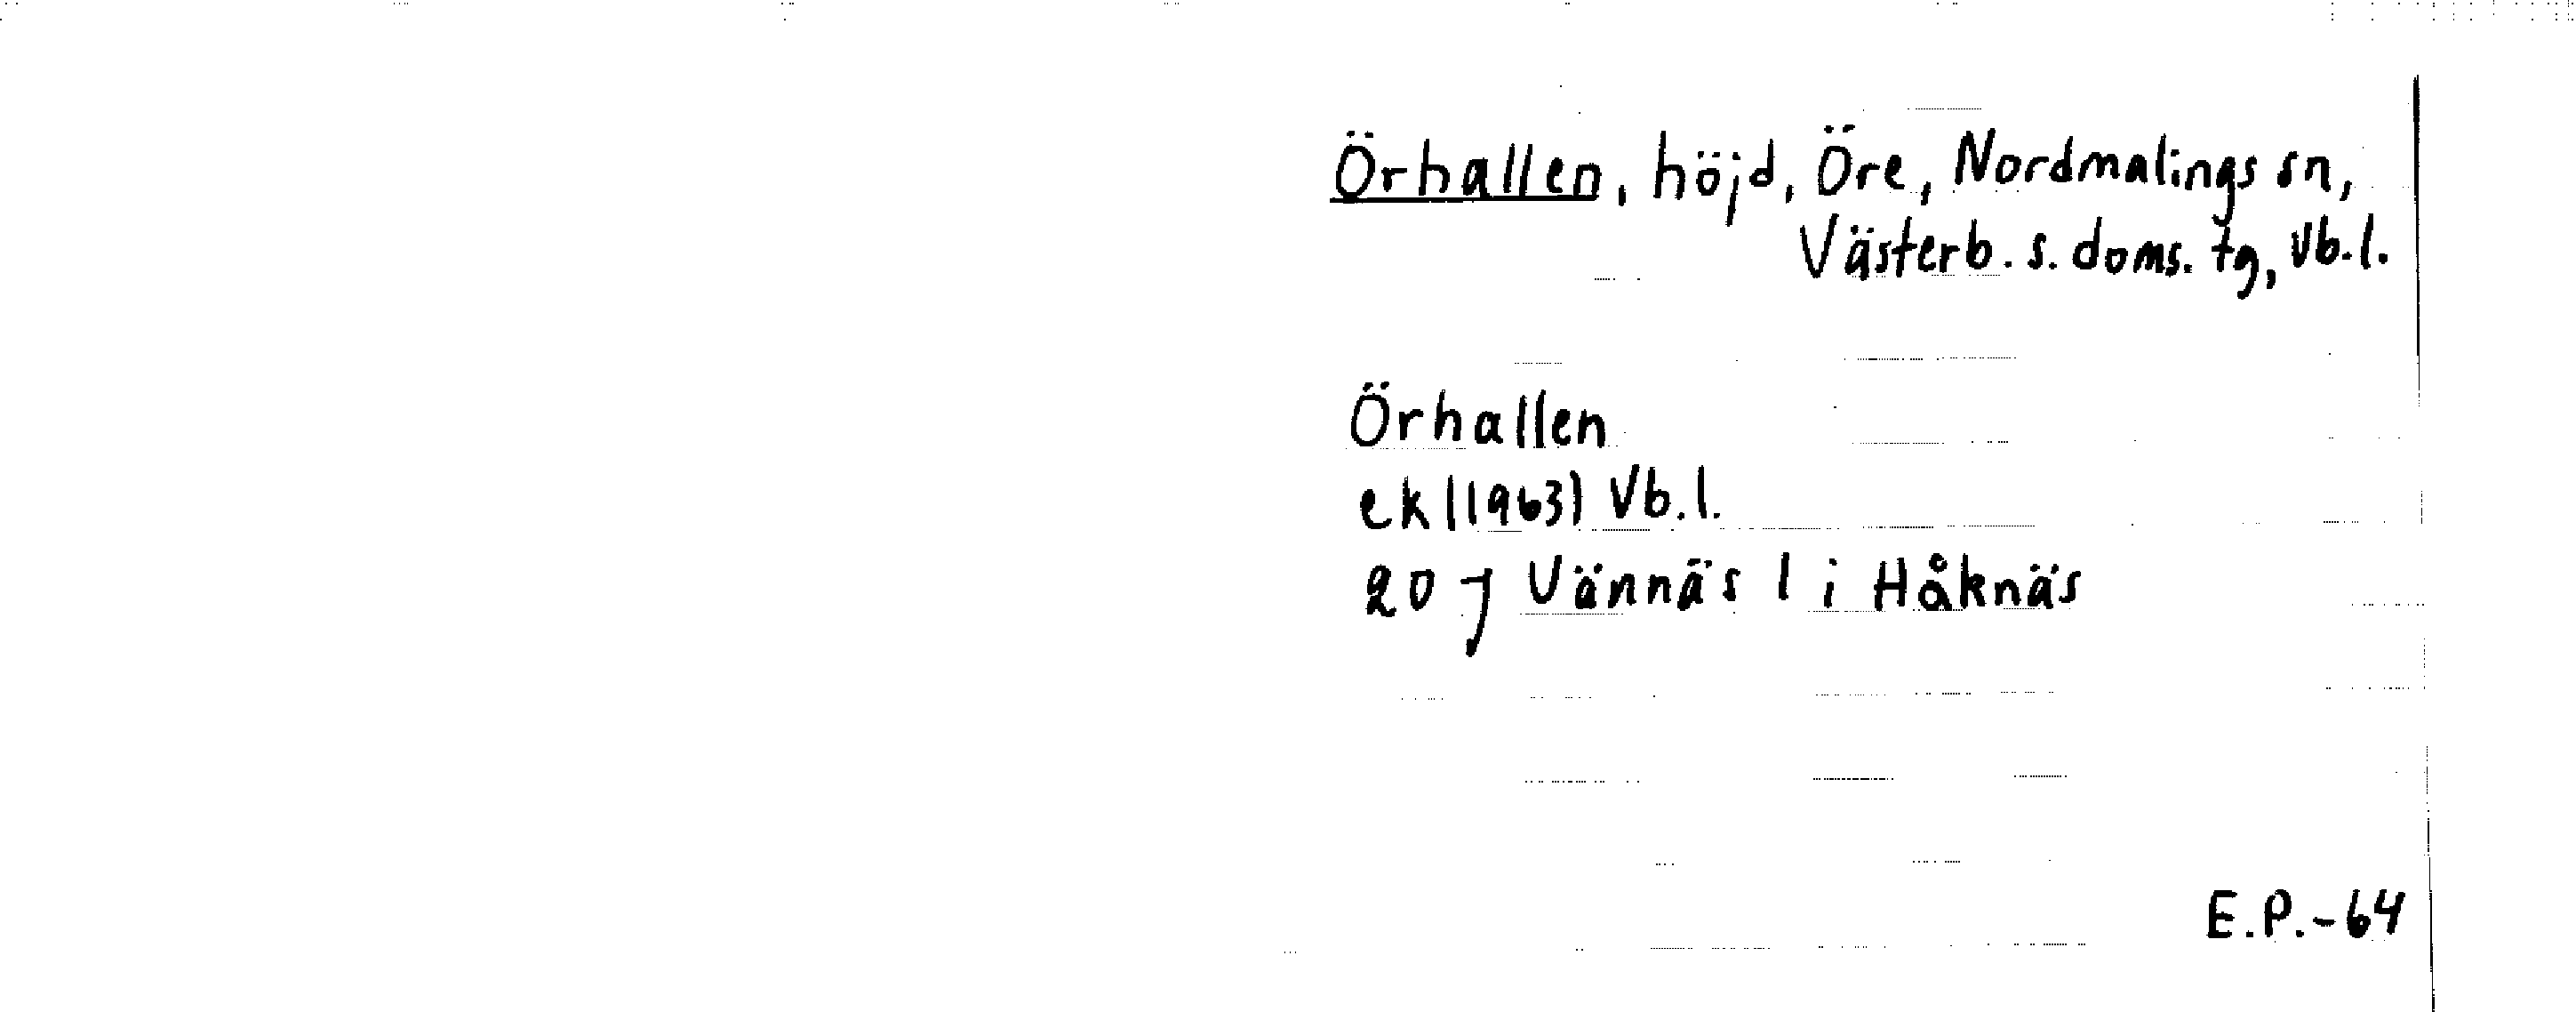 Örhallen, höjd, Öre, Nordmalings sn,
Västerb. s. doms. tg, Vb.l.
Örhallen
ek (1963) Vb.l.
20 J Vännäs l i Håknäs
E.P.-64